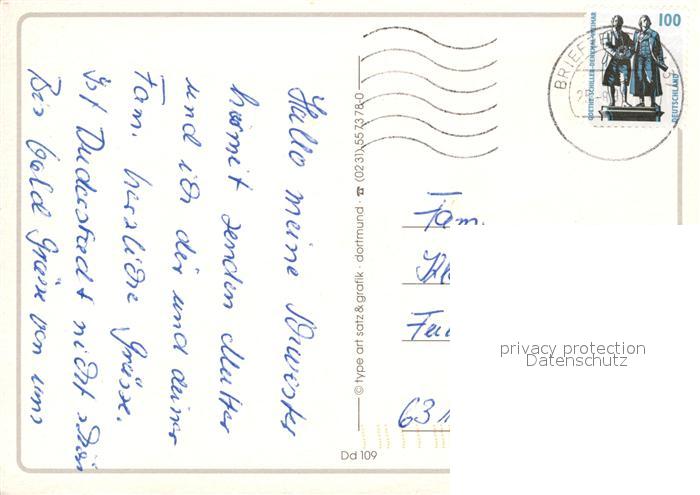 Hallo meine Schwester
hirmit senden Mutter
und ich dir und deiner
Fam. herzliche Grüsse.
Ist Duderstadt nicht schön
Bis bald Grüsse von uns
© type art satz & grafik · dortmund · ☎ (0231) 557378-0
Dd 109
BRIEF
100
GOETHE-SCHILLER-DENKMAL WEIMAR
DEUTSCHLAND
Fam.
631
privacy protection
Datenschutz